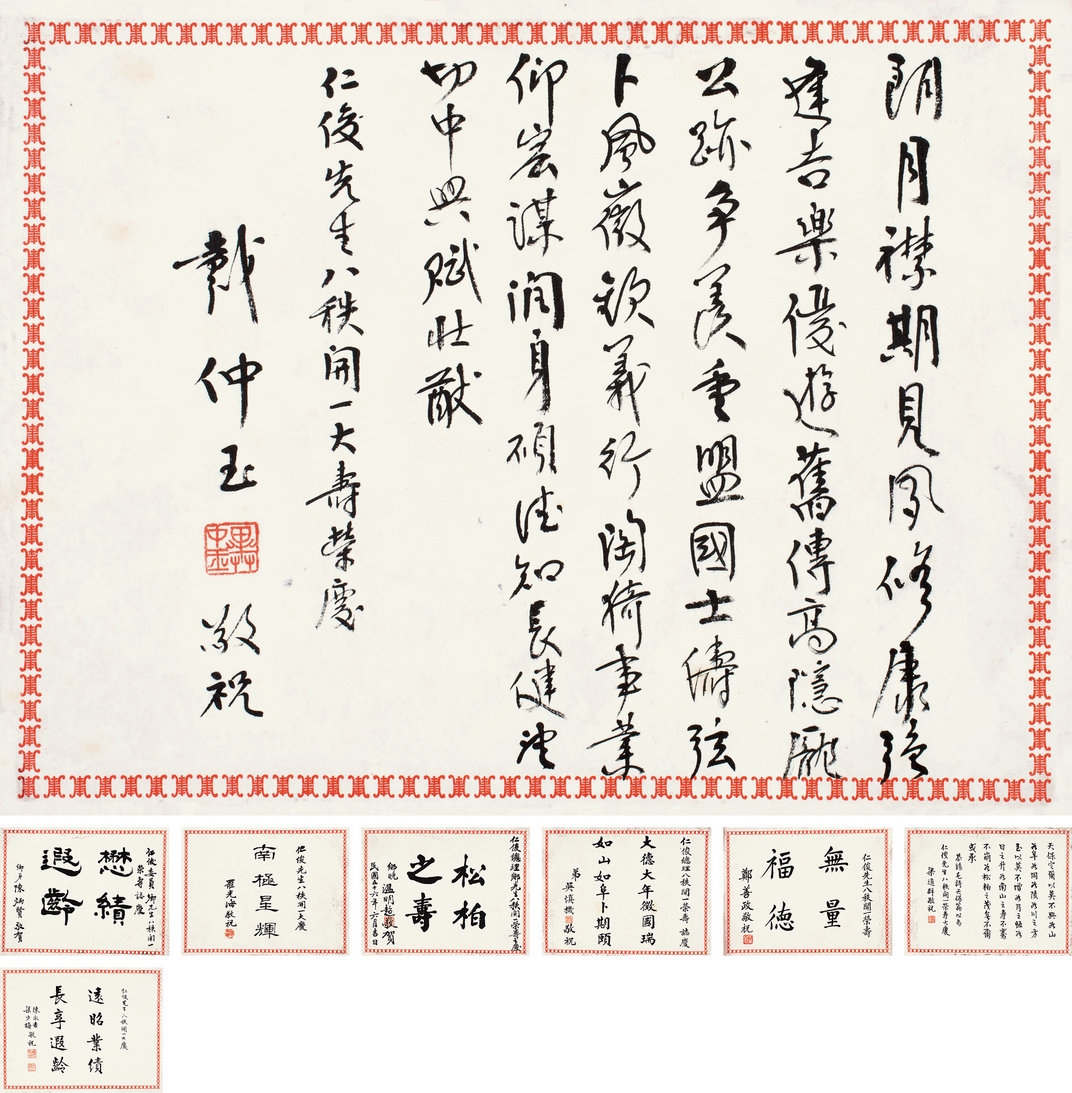 朗月襟期見夙修康強
逢吉樂優游舊傳高隱龐
公跡爭羨重盟國士儔弦
卜風徽欽義行陶猗事業
仰宏謀潤身碩德知長健決
切中興賦壯猷
仁俊先生八秩開一大壽榮慶
戴仲玉
敬祝
仁俊委員鄉先生八秩開一
榮壽誌慶
懋績
遐齡
鄉弟陳炳賢敬賀
仁俊先生八秩開一大慶
南極星輝
羅光海敬祝
仁俊總理鄉先生八秩開一榮壽之慶
松柏
之壽
鄉晚溫明敬賀
民國五十六年六月吉日
仁俊總理八秩開一榮壽誌慶
大德大年徵國瑞
如山如阜卜期頤
弟吳慎機敬祝
仁俊先生八秩開一榮壽
無量
福德
鄭善政敬祝
天保定爾以莫不興如山
如阜如岡如陵如川之方
至以莫不增如月之恆如
日之升如南山之壽不騫
不崩如松柏之茂無不爾
或承
恭錄毛詩天保篇以為
仁俊先生八秩開一榮壽大慶
梁道群敬祝
仁俊先生八秩開一大慶
遠昭業績
長享遐齡
陳永書
梁少梅敬祝